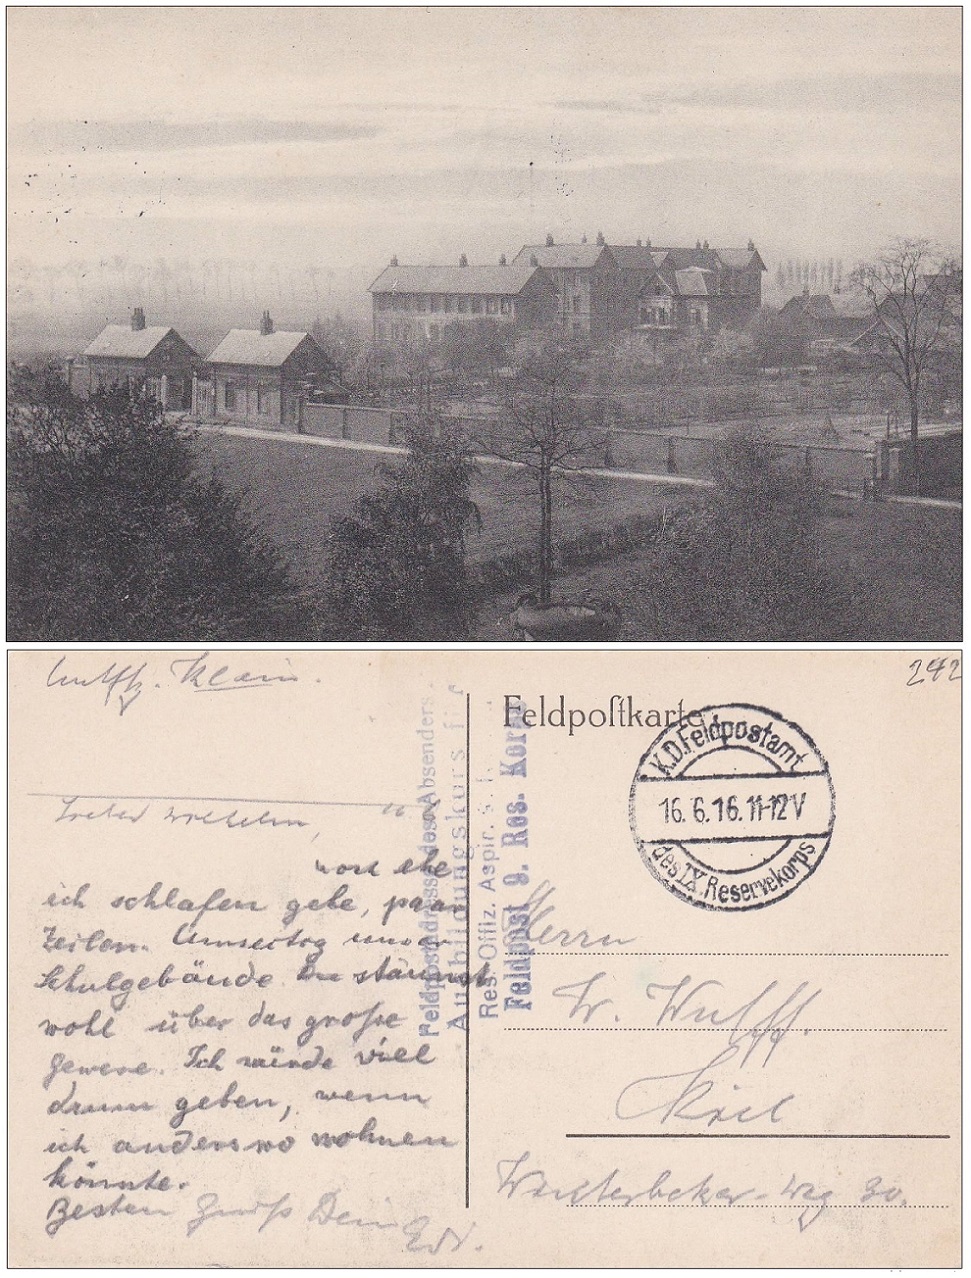 Wulff. Klain.
242
Feldpostkarte
K.D. Feldpostamt
16. 6. 16. 11-12 V
des IX. Reservekorps
Feldpostadresse des Absenders.
Ausbildungskurs für
Res. Offiz. Aspir.
Feldpost 9. Res. Korps
Lieber Wilhelm,
ehe
ich schlafen gehe, paar
Zeilen. Umseitig unser
Schulgebände. Du staunst
wohl über das große
Gewese. Ich würde viel
drum geben, wenn
ich anderswo wohnen
könnte.
Besten Gruß Dein
Edi.
Herrn
W. Wulff.
Kiel
Winterbeker-Weg 30.